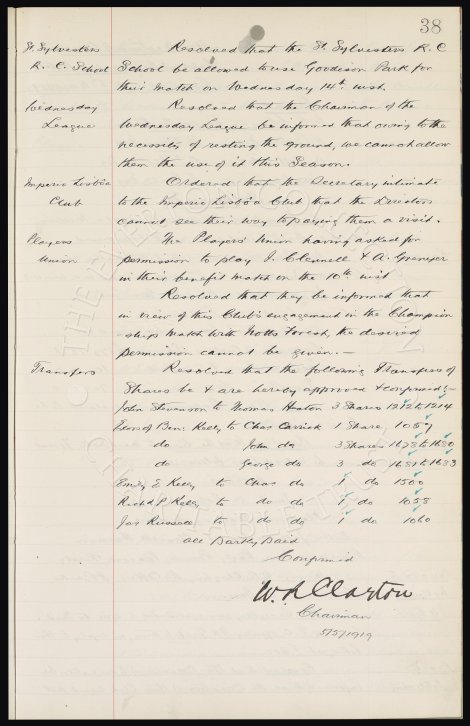 38
St. Sylvesters Resolved that the St. Sylvesters R. C
R. C. School School be allowed to use Goodison Park for
their match on Wednesday 14th inst.
Wednesday Resolved that the Chairman of the
League Wednesday League be informed that owing to the
necessity of resting the ground, we cannot allow
them the use of it this Season.
Imperio Lisbôa Ordered that the Secretary intimate
Club to the Imperio Lisbôa Club that the Directors
cannot see their way to paying them a visit.
Players The Players' Union having asked for
Union permission to play J. Clennell & A. Grenyer
in their benefit match on the 10th inst
Resolved that they be informed that
in view of this Club's engagement in the Champion
-ships Match with Notts Forest, the desired
permission cannot be given.—
Transfers Resolved that the following Transfers of
Shares be & are hereby approved & confirmed:-
John Stevenson to Thomas Heaton 3 Shares 1212 to 1214
Exors of Benj Kelly to Chas Carrick 1 Share 1059
do John do 3 Shares 1678 to 1680
do George do 3 do 1681 to 1683
Emily E Kelly to Chas do 1 do 1500
Richd P Kelly to do do 1 do 1058
Jas Russell to do do 1 do 1060
all Partly Paid
Confirmed
W. R Clayton
Chairman
5/5/1919
THE EVERTON COLLECTION CHARITABLE TRUST